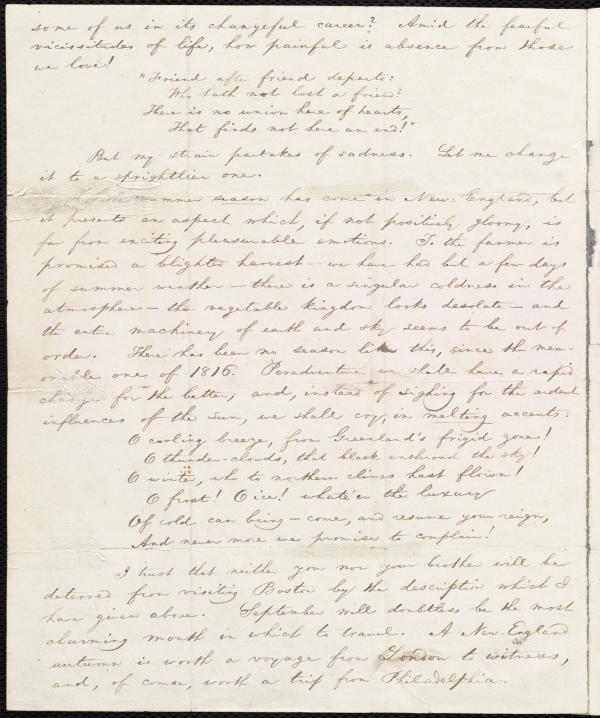 some of us in its changeful career? Amid the fearful
vicissitudes of life, how painful is absence from those
we love!
"Friend after friend departs:
Who hath not lost a friend?
There is no union here of hearts,
That finds not here an end!"
But my strain partakes of sadness. Let me change
it to a sprightlier one.
The summer season has come in New-England, but
it presents an aspect which, if not positively gloomy, is
far from exciting pleasurable emotions. To the farmer is
promised a blighted harvest — we have had but a few days
of summer weather — there is a singular coldness in the
atmosphere — the vegetable kingdom looks desolate — and
the entire machinery of earth and sky seems to be out of
order. There has been no season like this, since the mem-
orable one of 1816. Peradventure we shall have a rapid
change for the better, and, instead of sighing for the ardent
influences of the sun, we shall cry, in melting accents:
O cooling breeze, from Greenland's frigid zone!
O thunder-clouds, that black enshroud the sky!
O winter, who to northern climes hast flown!
O frost! O ice! whate'er the luxury
Of cold can bring — come, and resume your reign,
And never more we promise to complain!
I trust that neither you nor your brother will be
deterred from visiting Boston by the description which I
have given above. September will doubtless be the most
charming month in which to travel. A New-England
autumn is worth a voyage from London to witness,
and, of course, worth a trip from Philadelphia.